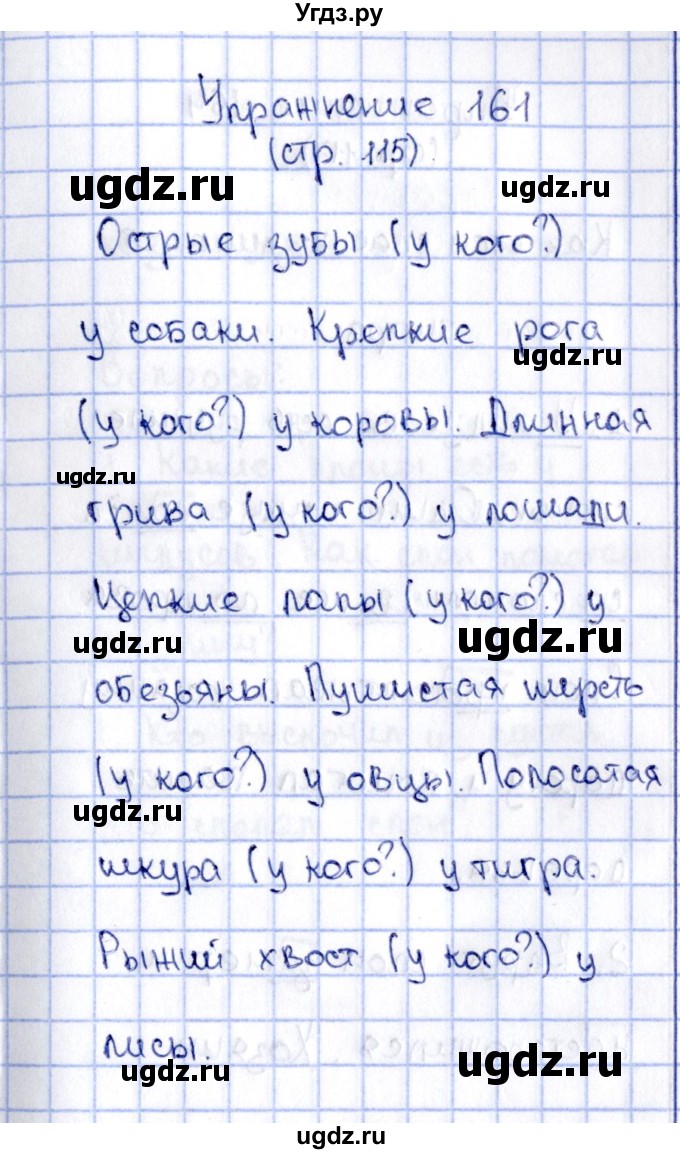 Угдз.ру
Упражнение 161
(стр. 115)
ugdz.ru ugdz.ru
Острые зубы (у кого?)
у собаки. Крепкие рога
ugdz.ru
(у кого?) у коровы. Длинная
ugdz.ru
грива (у кого?) у лошади.
Цепкие лапы (у кого?) у
ugdz.ru ugdz.ru
обезьяны. Пушистая шерсть
(у кого?) у овцы. Полосатая
ugdz.ru
шкура (у кого?) у тигра.
Рыжий хвост (у кого?) у
лисы.
ugdz.ru ugdz.ru
ugdz.ru